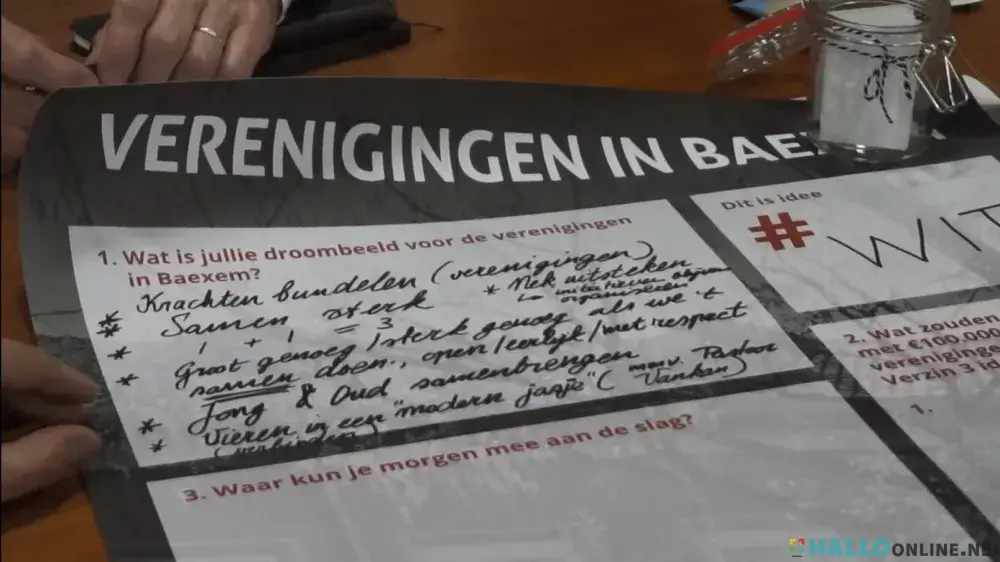 VERENIGINGEN IN BAEX
1. Wat is jullie droombeeld voor de verenigingen
in Baexem?
* Krachten bundelen (verenigingen)
* Samen sterk
* Nek uitsteken
↳ initiatieven
organiseren
* 1 + 1 = 3
* Groot genoeg / sterk genoeg als we 't
samen doen, open/eerlijk/met respect
* Jong & Oud samenbrengen
* Vieren in een "modern jasje" (m.m.v. Pastoor
(verbinden) Vankan)
Dit is idee
# WIT
2. Wat zouden
met €100.000
vereniginge
Verzin 3 id
1.
3. Waar kun je morgen mee aan de slag?
HALLOONLINE.NL